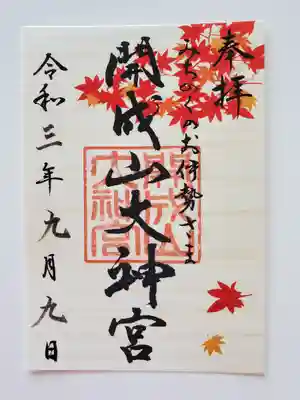 奉拝
みちのくのお伊勢さま
開成山大神宮
開成山大神宮
令和三年九月九日